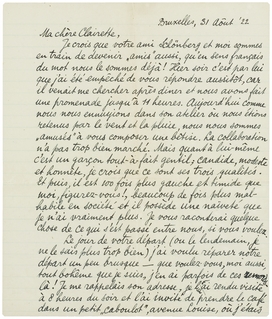 Bruxelles, 31 Août '22
Ma chère Clairette,
Je crois que votre ami Schönberg et moi sommes
en train de devenir "amis" aussi, qu'en sens français
du mot nous le sommes déjà! Hier soir c'est par lui
que j'ai été empêché de vous répondre aussitôt, car
il venait me chercher après dîner et nous avons fait
une promenade jusqu'à 11 heures. Aujourd'hui comme
nous nous ennuyions dans son atelier où nous étions
retenus par le vent et la pluie, nous nous sommes
"amusés" à vous composer une bêtise. La collaboration
n'a pas trop bien marché. Mais quant à lui-même
c'est un garçon tout-à-fait gentil, candide, modeste
et honnête, je crois que ce sont ses trois qualités.
Et puis, il est 100 fois plus gauche et timide que
moi, figurez-vous! Beaucoup de fois plus mal-
habile en société et il possède une naïveté que
je n'ai vraiment plus. Je vous raconterai quelque
chose de ce qui s'est passé entre nous, si vous voulez.
Le jour de votre départ (ou le lendemain, je
ne le sais plus trop bien) j'ai voulu réparer notre
départ un peu brusque — que voulez-vous, moi aussi
tout bohème que je suis, j'en ai parfois de ces
là! Je me rappelais son adresse, je lui rendu visite
à 8 heures du soir et l'ai invité de prendre le café
dans un petit "caboulot" avenue Louise, où j'étais